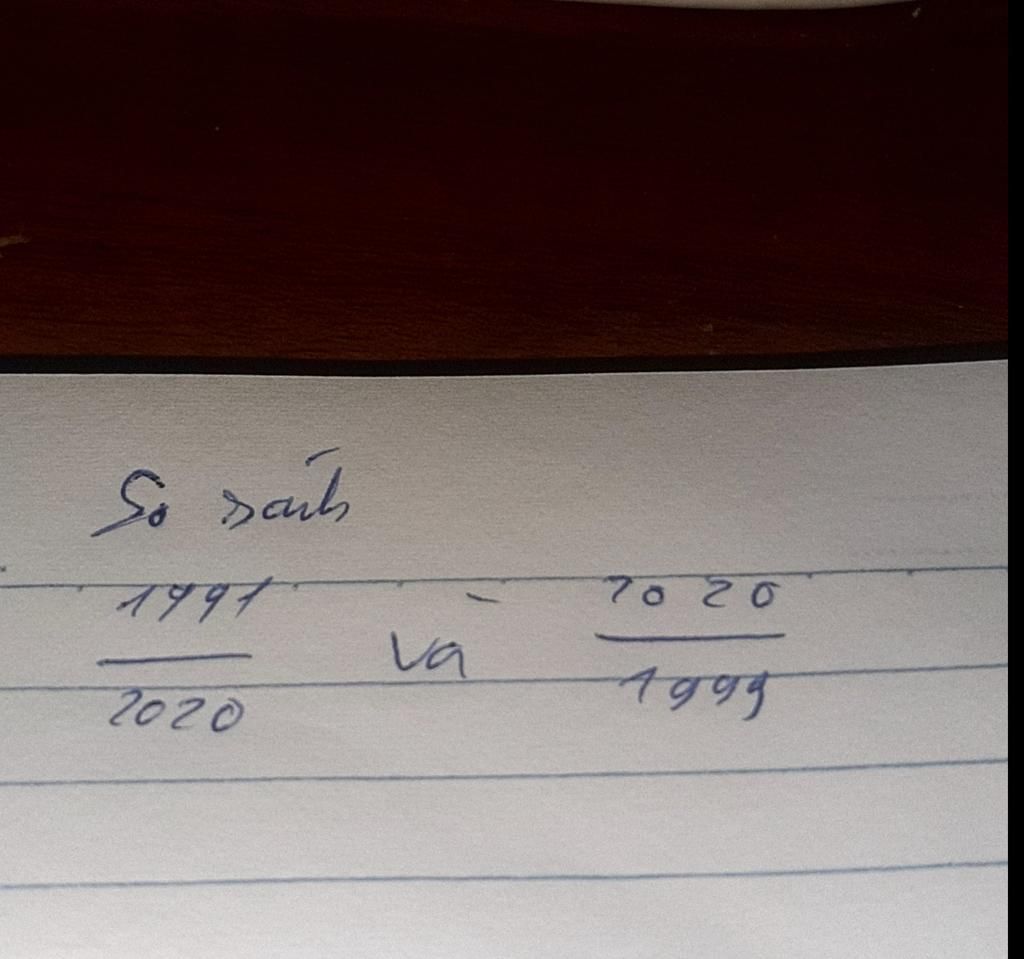 So sánh
1991 và 2020
2020 1999